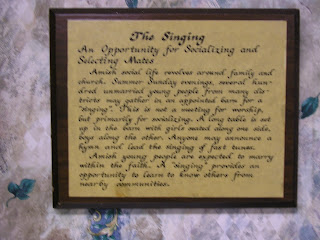 The Singing
An Opportunity for Socializing and
Selecting Mates
Amish social life revolves around family and
church. Summer Sunday evenings, several hun-
dred unmarried young people from many dis-
tricts may gather in an appointed barn for a
"singing". This is not a meeting for worship,
but primarily for socializing. A long table is set
up in the barn with girls seated along one side,
boys along the other. Anyone may announce a
hymn and lead the singing of fast tunes.
Amish young people are expected to marry
within the faith. A "singing" provides an
opportunity to learn to know others from
nearby communities.